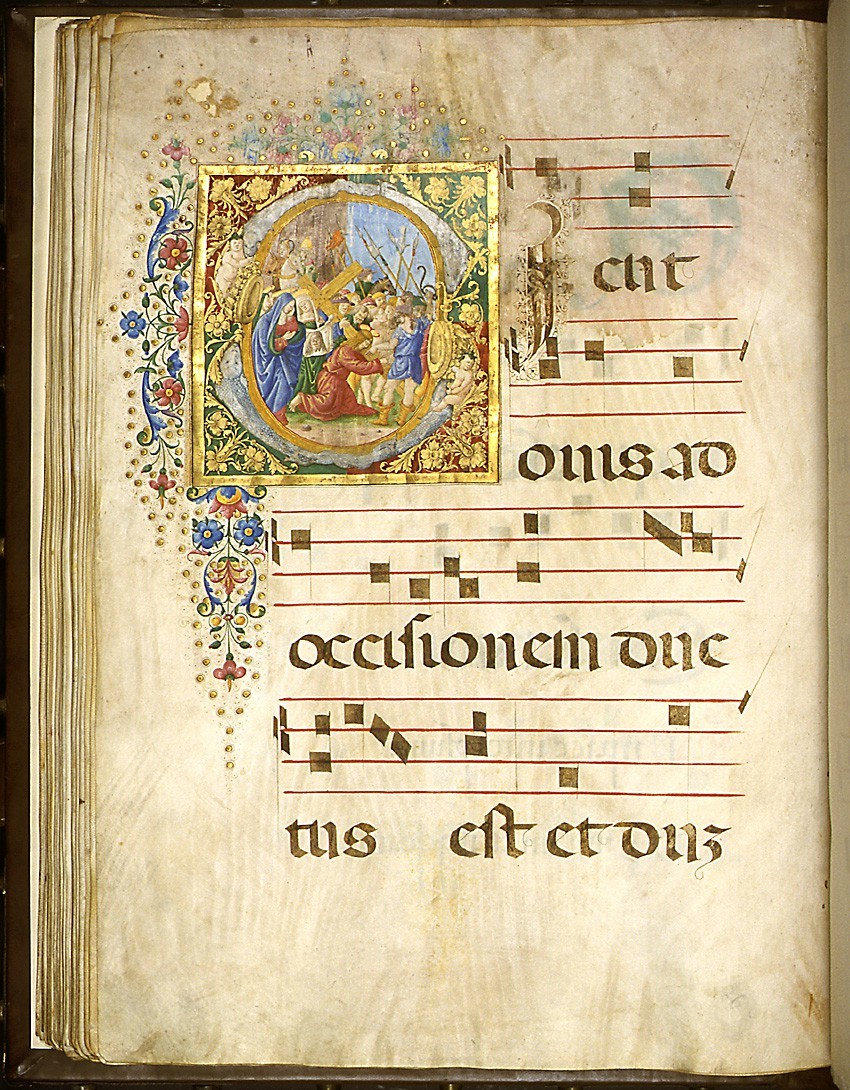 SIcut
ouis ad
occisionem duc
tus est et duʒ